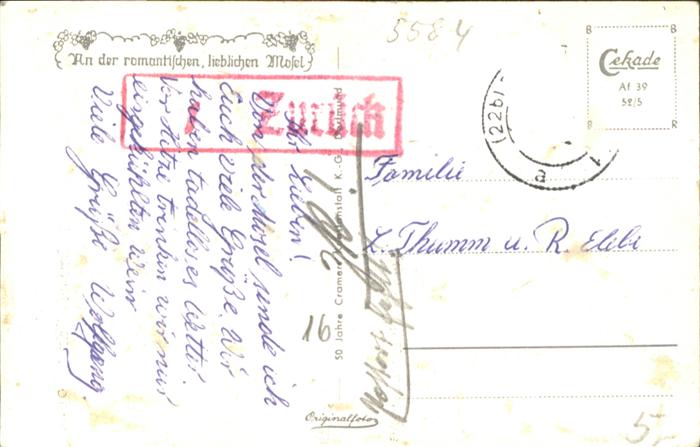 An der romantischen, lieblichen Mosel
Zurück
Ihr Lieben!
Von der Mosel sende ich
Euch viele Grüße. Wir
haben tadelloses Wetter.
Vor Hitze trinken wir nur
eingekühlten Wein
Viele Grüße Wolfgang.
5584
Cekade
Af 39
52/5
(22b)
a
Familie
L. Thumm u. R.
16
50 Jahre Cramers Kunstanstalt K.-G., Dortmund
Originalfoto
5,-